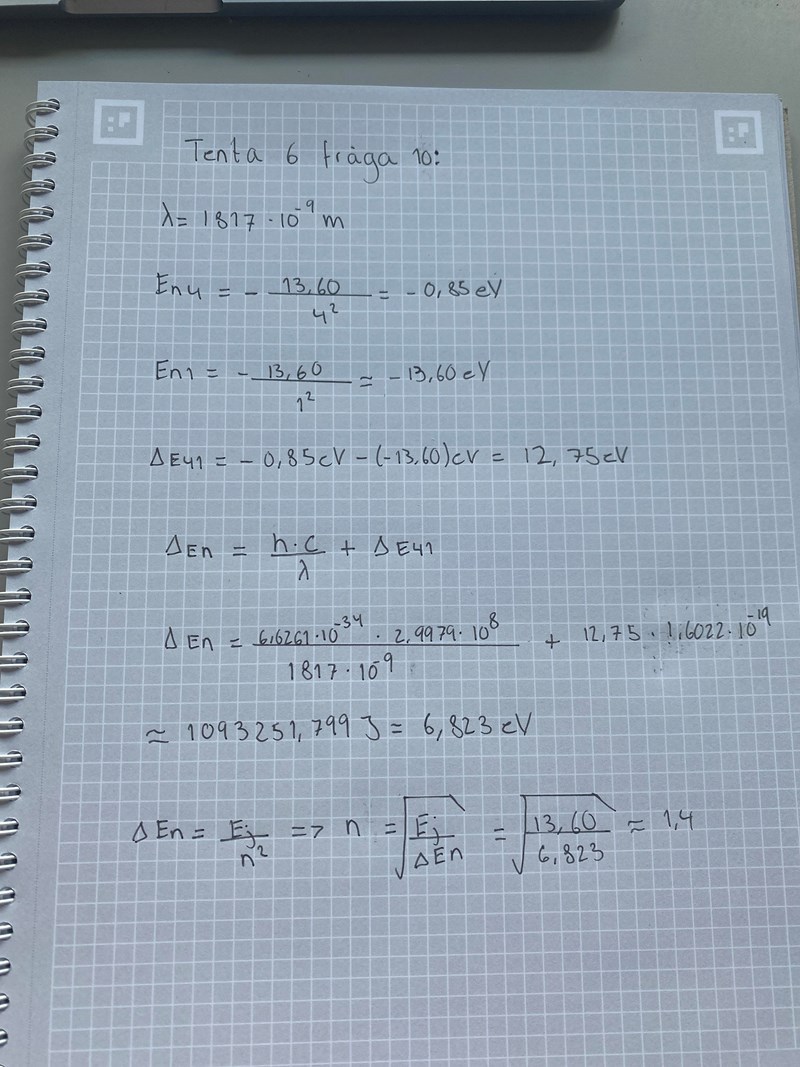 Tenta 6 fråga 10:
λ = 1817 · 10^-9 m
En4 = - 13,60 / 4² = - 0,85 eV
En1 = - 13,60 / 1² = - 13,60 eV
ΔE41 = - 0,85 eV - (-13,60) eV = 12,75 eV
ΔEn = h·c / λ + ΔE41
ΔEn = 6,6261·10^-34 · 2,9979·10^8 / 1817·10^-9 + 12,75 · 1,6022·10^-19
≈ 1093251,799 J = 6,823 eV
ΔEn = Ej / n² => n = √(Ej / ΔEn) = √(13,60 / 6,823) ≈ 1,4